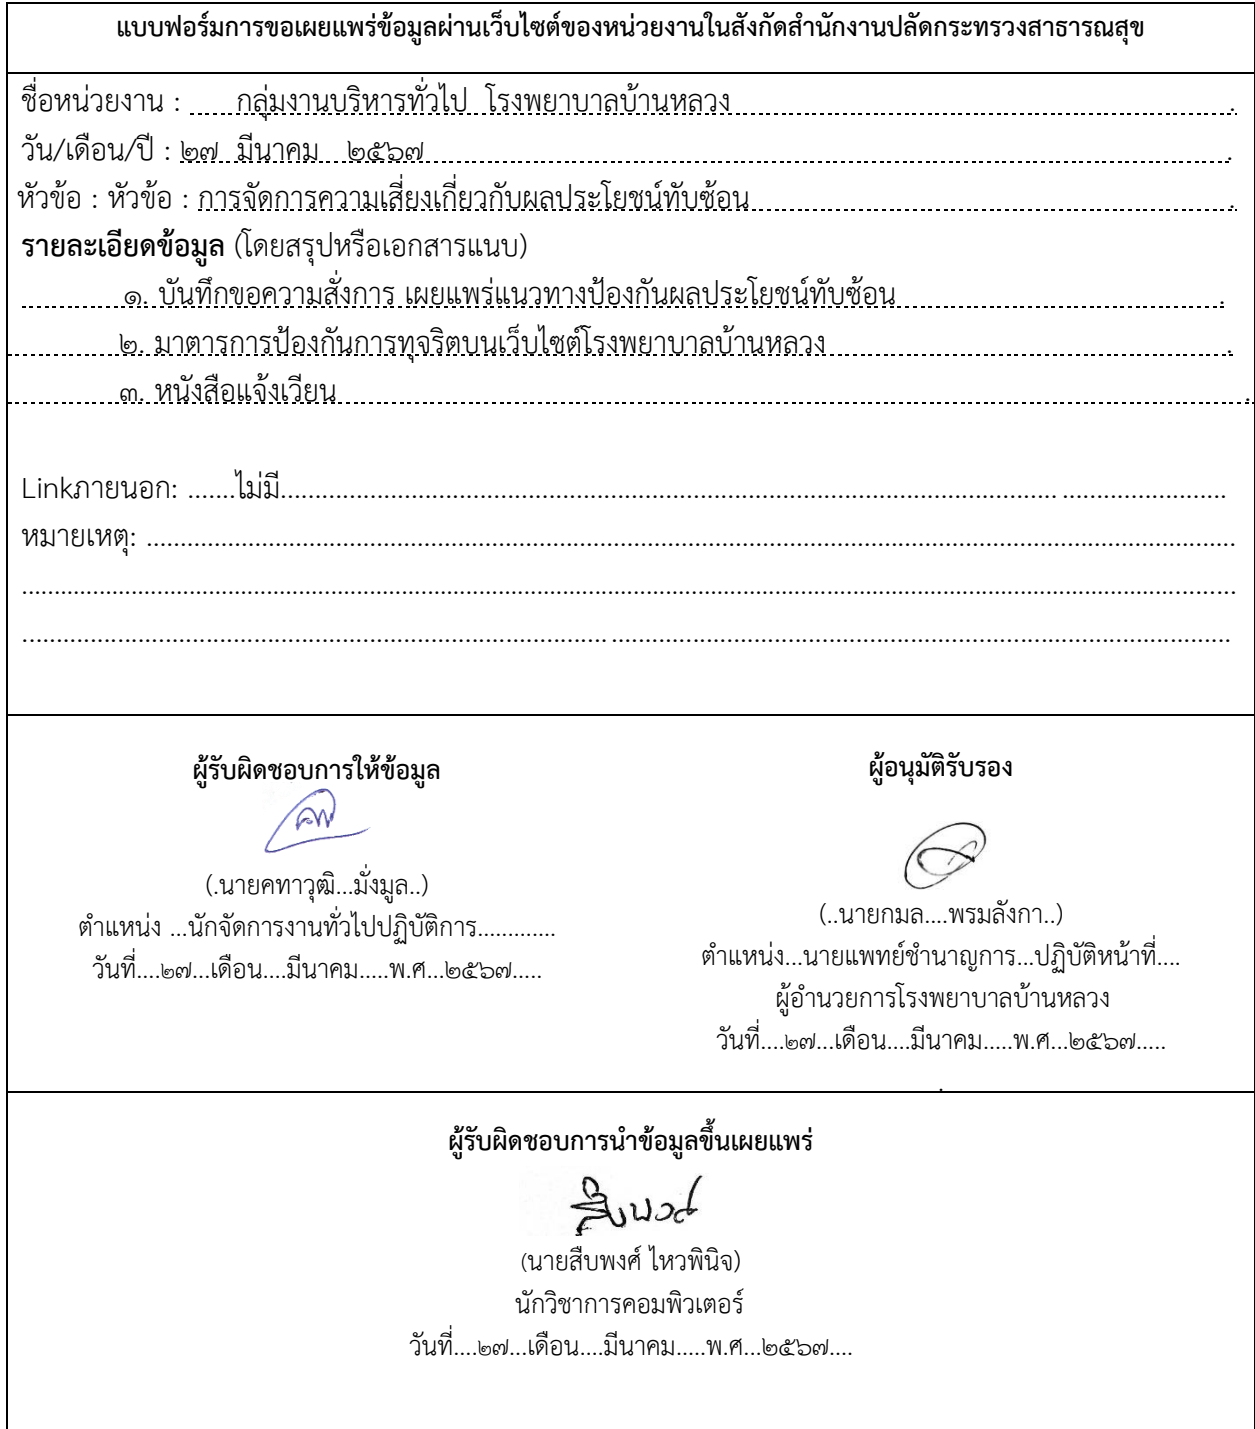 แบบฟอร์มการขอเผยแพร่ข้อมูลผ่านเว็บไซต์ของหน่วยงานในสังกัดสำนักงานปลัดกระทรวงสาธารณสุข
ชื่อหน่วยงาน : กลุ่มงานบริหารทั่วไป โรงพยาบาลบ้านหลวง
วัน/เดือน/ปี : ๒๗ มีนาคม ๒๕๖๗
หัวข้อ : หัวข้อ : การจัดการความเสี่ยงเกี่ยวกับผลประโยชน์ทับซ้อน
รายละเอียดข้อมูล (โดยสรุปหรือเอกสารแนบ)
๑. บันทึกขอความสั่งการ เผยแพร่แนวทางป้องกันผลประโยชน์ทับซ้อน
๒. มาตารการป้องกันการทุจริตบนเว็บไซต์โรงพยาบาลบ้านหลวง
๓. หนังสือแจ้งเวียน
Linkภายนอก: .......ไม่มี........................................................................
หมายเหตุ: ........................................................................
ผู้รับผิดชอบการให้ข้อมูล
(.นายคทาวุฒิ...มั่งมูล..)
ตำแหน่ง ...นักจัดการงานทั่วไปปฏิบัติการ.............
วันที่....๒๗...เดือน....มีนาคม.....พ.ศ...๒๕๖๗.....
ผู้อนุมัติรับรอง
(..นายกมล....พรมลังกา..)
ตำแหน่ง...นายแพทย์ชำนาญการ...ปฏิบัติหน้าที่....
ผู้อำนวยการโรงพยาบาลบ้านหลวง
วันที่....๒๗...เดือน....มีนาคม.....พ.ศ...๒๕๖๗.....
ผู้รับผิดชอบการนำข้อมูลขึ้นเผยแพร่
สืบพงศ์
(นายสืบพงศ์ ไหวพินิจ)
นักวิชาการคอมพิวเตอร์
วันที่....๒๗...เดือน....มีนาคม.....พ.ศ...๒๕๖๗....